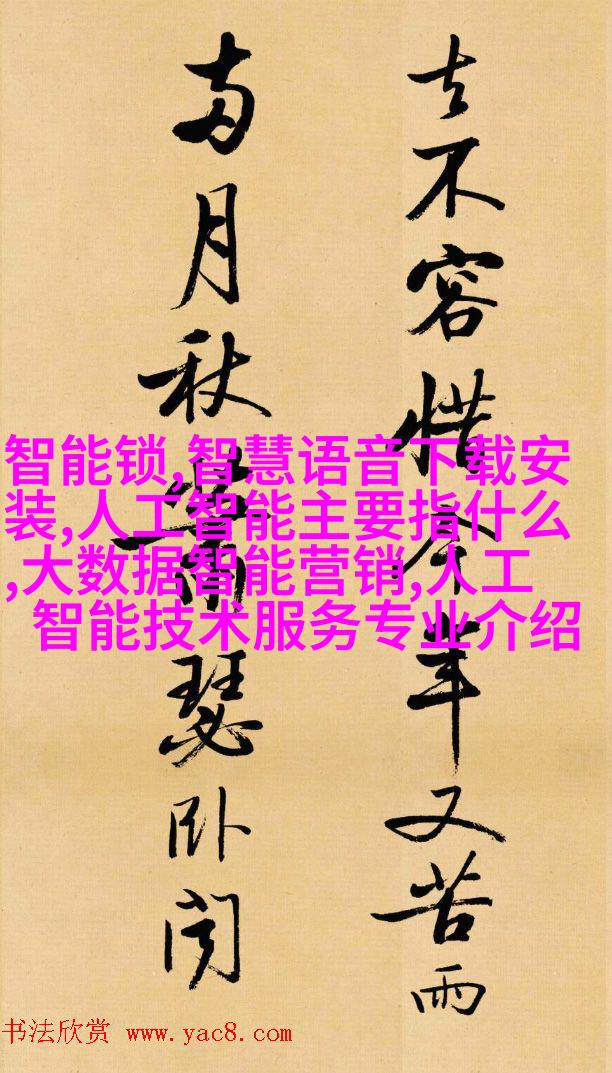 去不容惜今年又苦雨
两月秋蕭瑟卧闻
智能锁,智慧语音下载安
装,人工智能主要指什么
,大数据智能营销,人工
智能技术服务专业介绍
书法欣赏 www.yac8.com